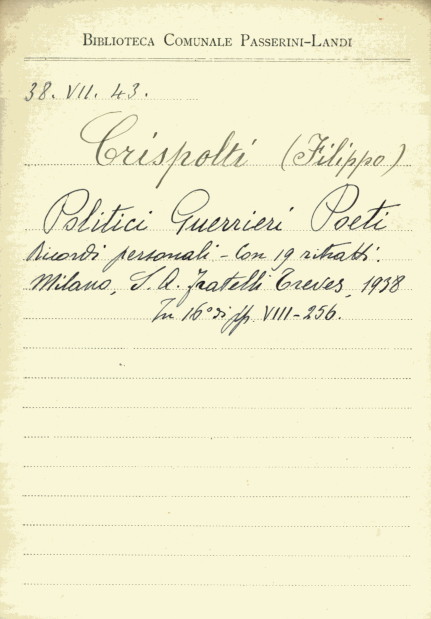 BIBLIOTECA COMUNALE PASSERINI-LANDI
38. VII. 43.
Crispolti (Filippo)
Politici Guerrieri Poeti
Ricordi personali - Con 19 ritratti.
Milano, S. A. Fratelli Treves, 1938
In 16° di pp. VIII-256.